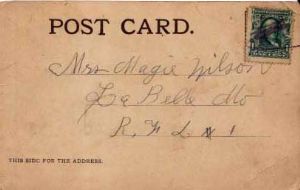 POST CARD.
Mrs Magie Wilson
La Belle Mo
R. F. D. # 1
THIS SIDE FOR THE ADDRESS.